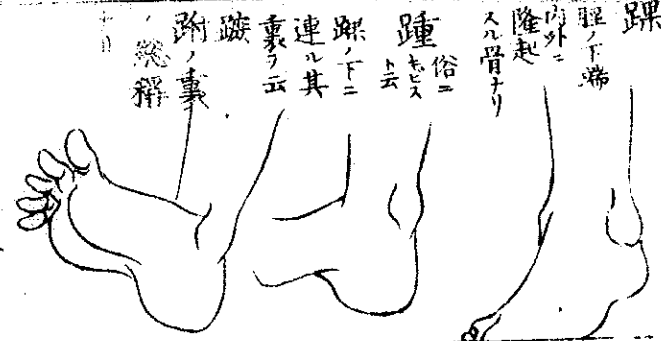 踝
脛ノ下端
内外ニ
隆起
スル骨ナリ
踵
俗ニ
キビス
ト云
踝ノ下ニ
連ル其
裏ヲ云
蹠
跗ノ裏
ノ総稱